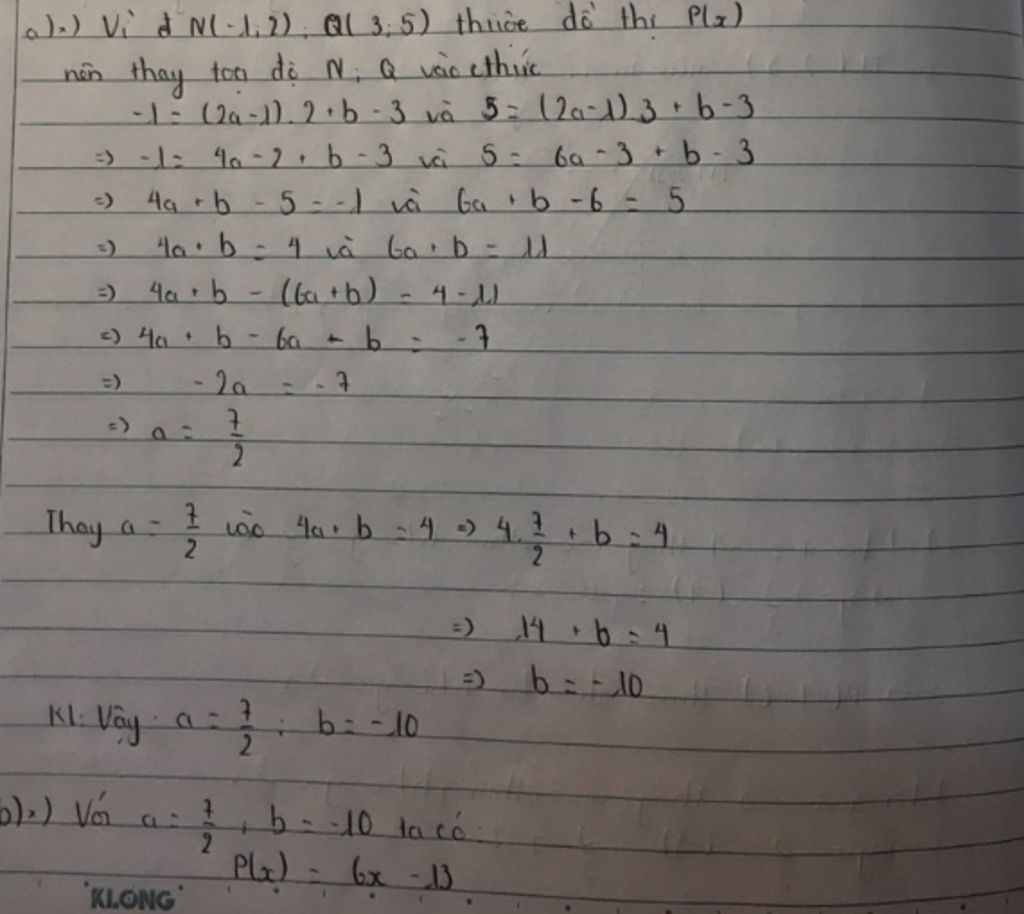 a).) Vì đ N(-1; 2); Q(3; 5) thuộc đồ thị P(x)
nên thay toạ độ N; Q vào cthức
-1 = (2a-1).2 + b - 3 và 5 = (2a-1)3 + b - 3
=) -1 = 4a - 2 + b - 3 và 5 = 6a - 3 + b - 3
=) 4a + b - 5 = -1 và 6a + b - 6 = 5
=) 4a + b = 4 và 6a + b = 11
=) 4a + b - (6a + b) = 4 - 11
=) 4a + b - 6a - b = -7
=) -2a = -7
=) a = 7/2
Thay a = 7/2 vào 4a + b = 4 =) 4.7/2 + b = 4
=) 14 + b = 4
=) b = -10
Kl: Vậy a = 7/2; b = -10
b).) Với a = 7/2, b = -10 ta có:
P(x) = 6x - 13
KLONG